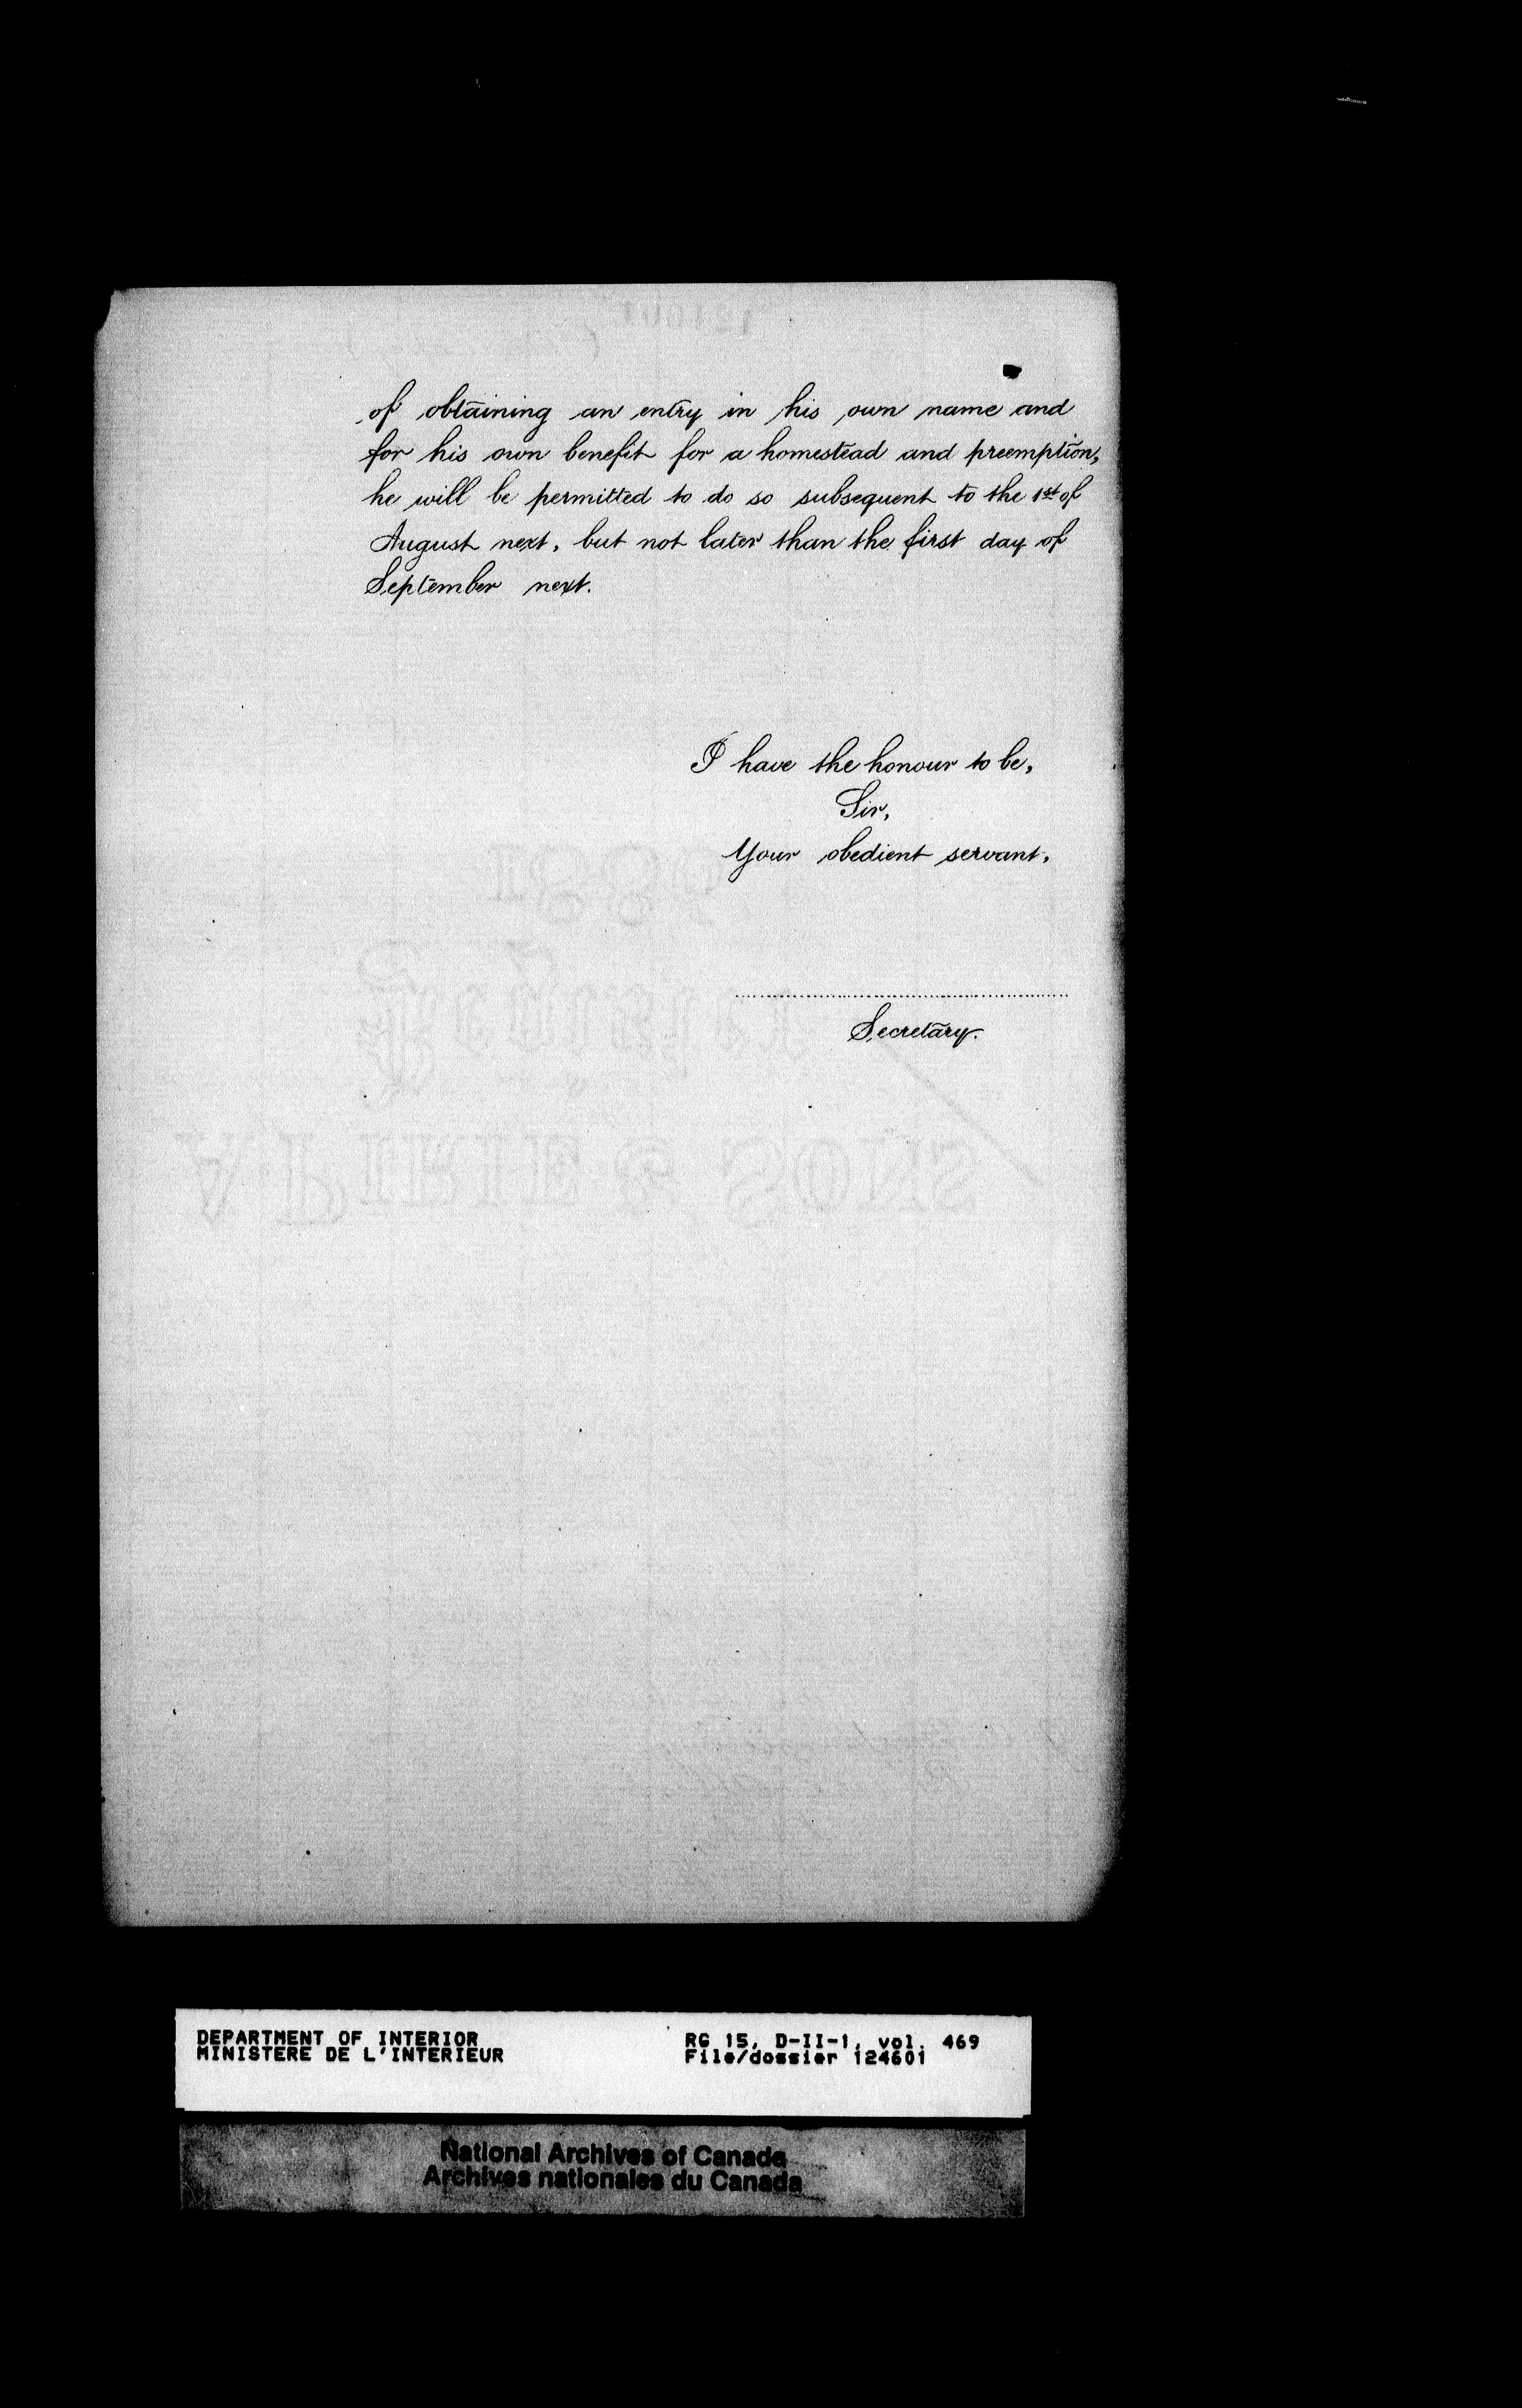 of obtaining an entry in his own name and
for his own benefit for a homestead and preemption,
he will be permitted to do so subsequent to the 1st of
August next, but not later than the first day of
September next.
I have the honour to be,
Sir,
Your obedient servant,
Secretary.
DEPARTMENT OF INTERIOR
MINISTERE DE L'INTERIEUR
RG 15, D-II-1, vol. 469
File/dossier 124601
National Archives of Canada
Archives nationales du Canada